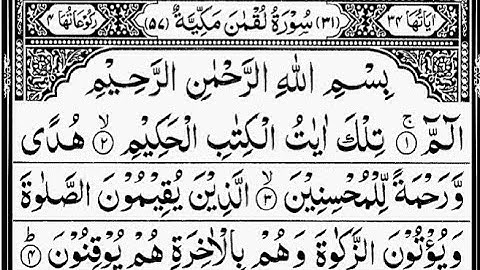 اٰيَاتُهَا ٣٤ (٣١) سُوْرَةُ لُقْمٰنَ مَكِّيَّةٌ (٥٧) رُكُوْعَاتُهَا ٤
بِسْمِ اللّٰهِ الرَّحْمٰنِ الرَّحِيْمِ
الٓمّٓ ۚ﴿١﴾ تِلْكَ اٰيٰتُ الْكِتٰبِ الْحَكِيْمِ ۙ﴿٢﴾ هُدًى
وَّرَحْمَةً لِّلْمُحْسِنِيْنَ ۙ﴿٣﴾ الَّذِيْنَ يُقِيْمُوْنَ الصَّلٰوةَ
وَيُؤْتُوْنَ الزَّكٰوةَ وَهُمْ بِالْاٰخِرَةِ هُمْ يُوْقِنُوْنَ ؕ﴿٤﴾